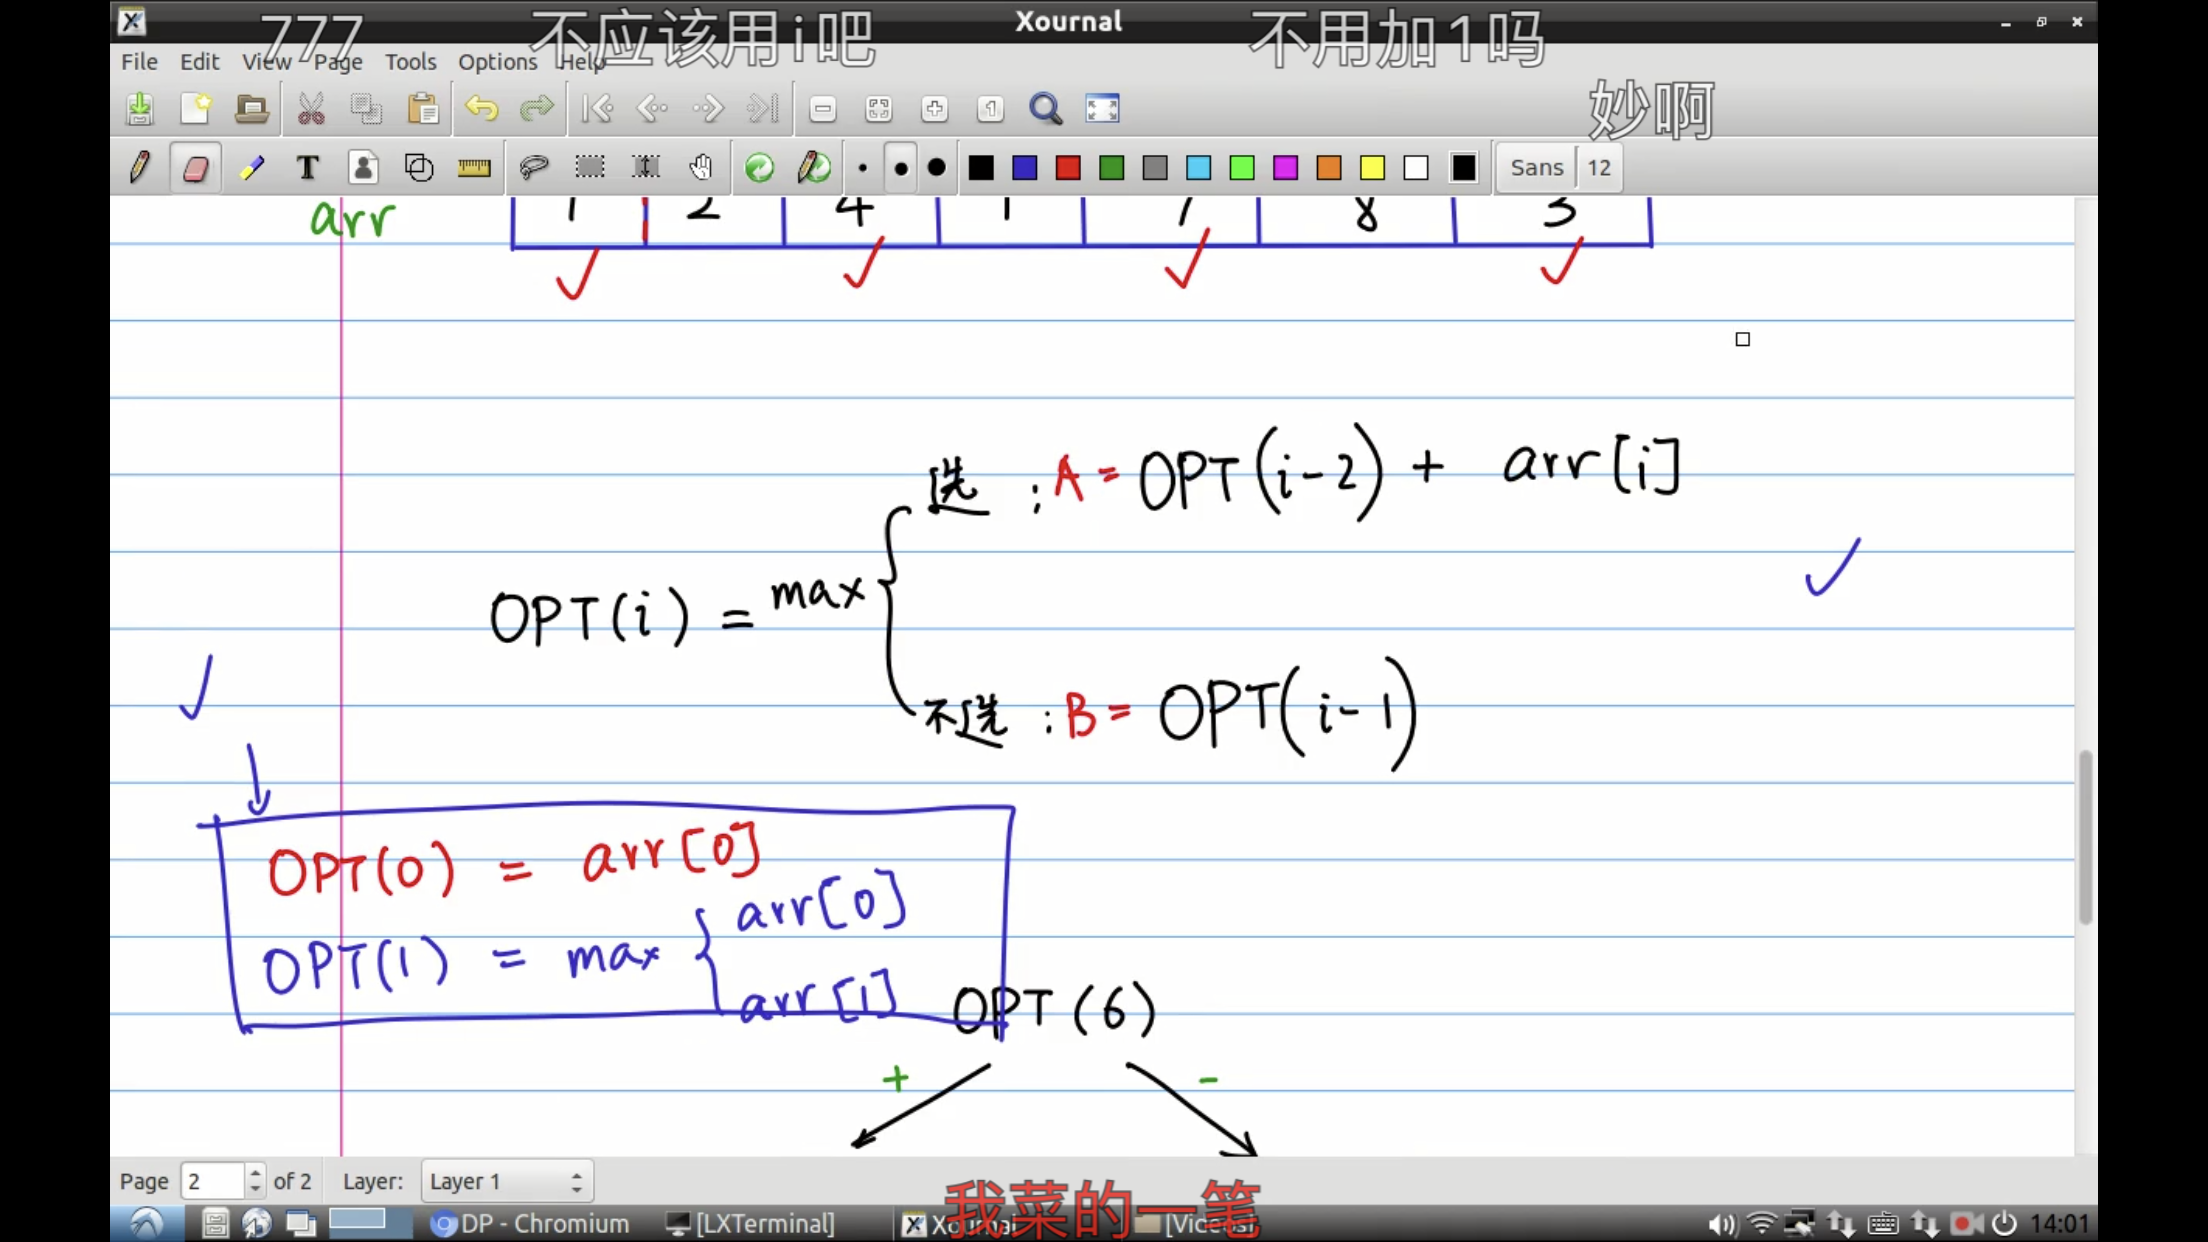 777 不应该用i吧 不用加1吗
Xournal
File Edit View Page Tools Options Help
妙啊
T Sans 12
arr 1 2 4 1 7 8 3
选 : A = OPT(i-2) + arr[i]
OPT(i) = max
不选 : B = OPT(i-1)
OPT(0) = arr[0]
OPT(1) = max arr[0]
arr[1]
OPT(6)
+ -
Page 2 of 2 Layer: Layer 1
我菜的一笔
DP - Chromium [LXTerminal] Xournal [Videos] 14:01